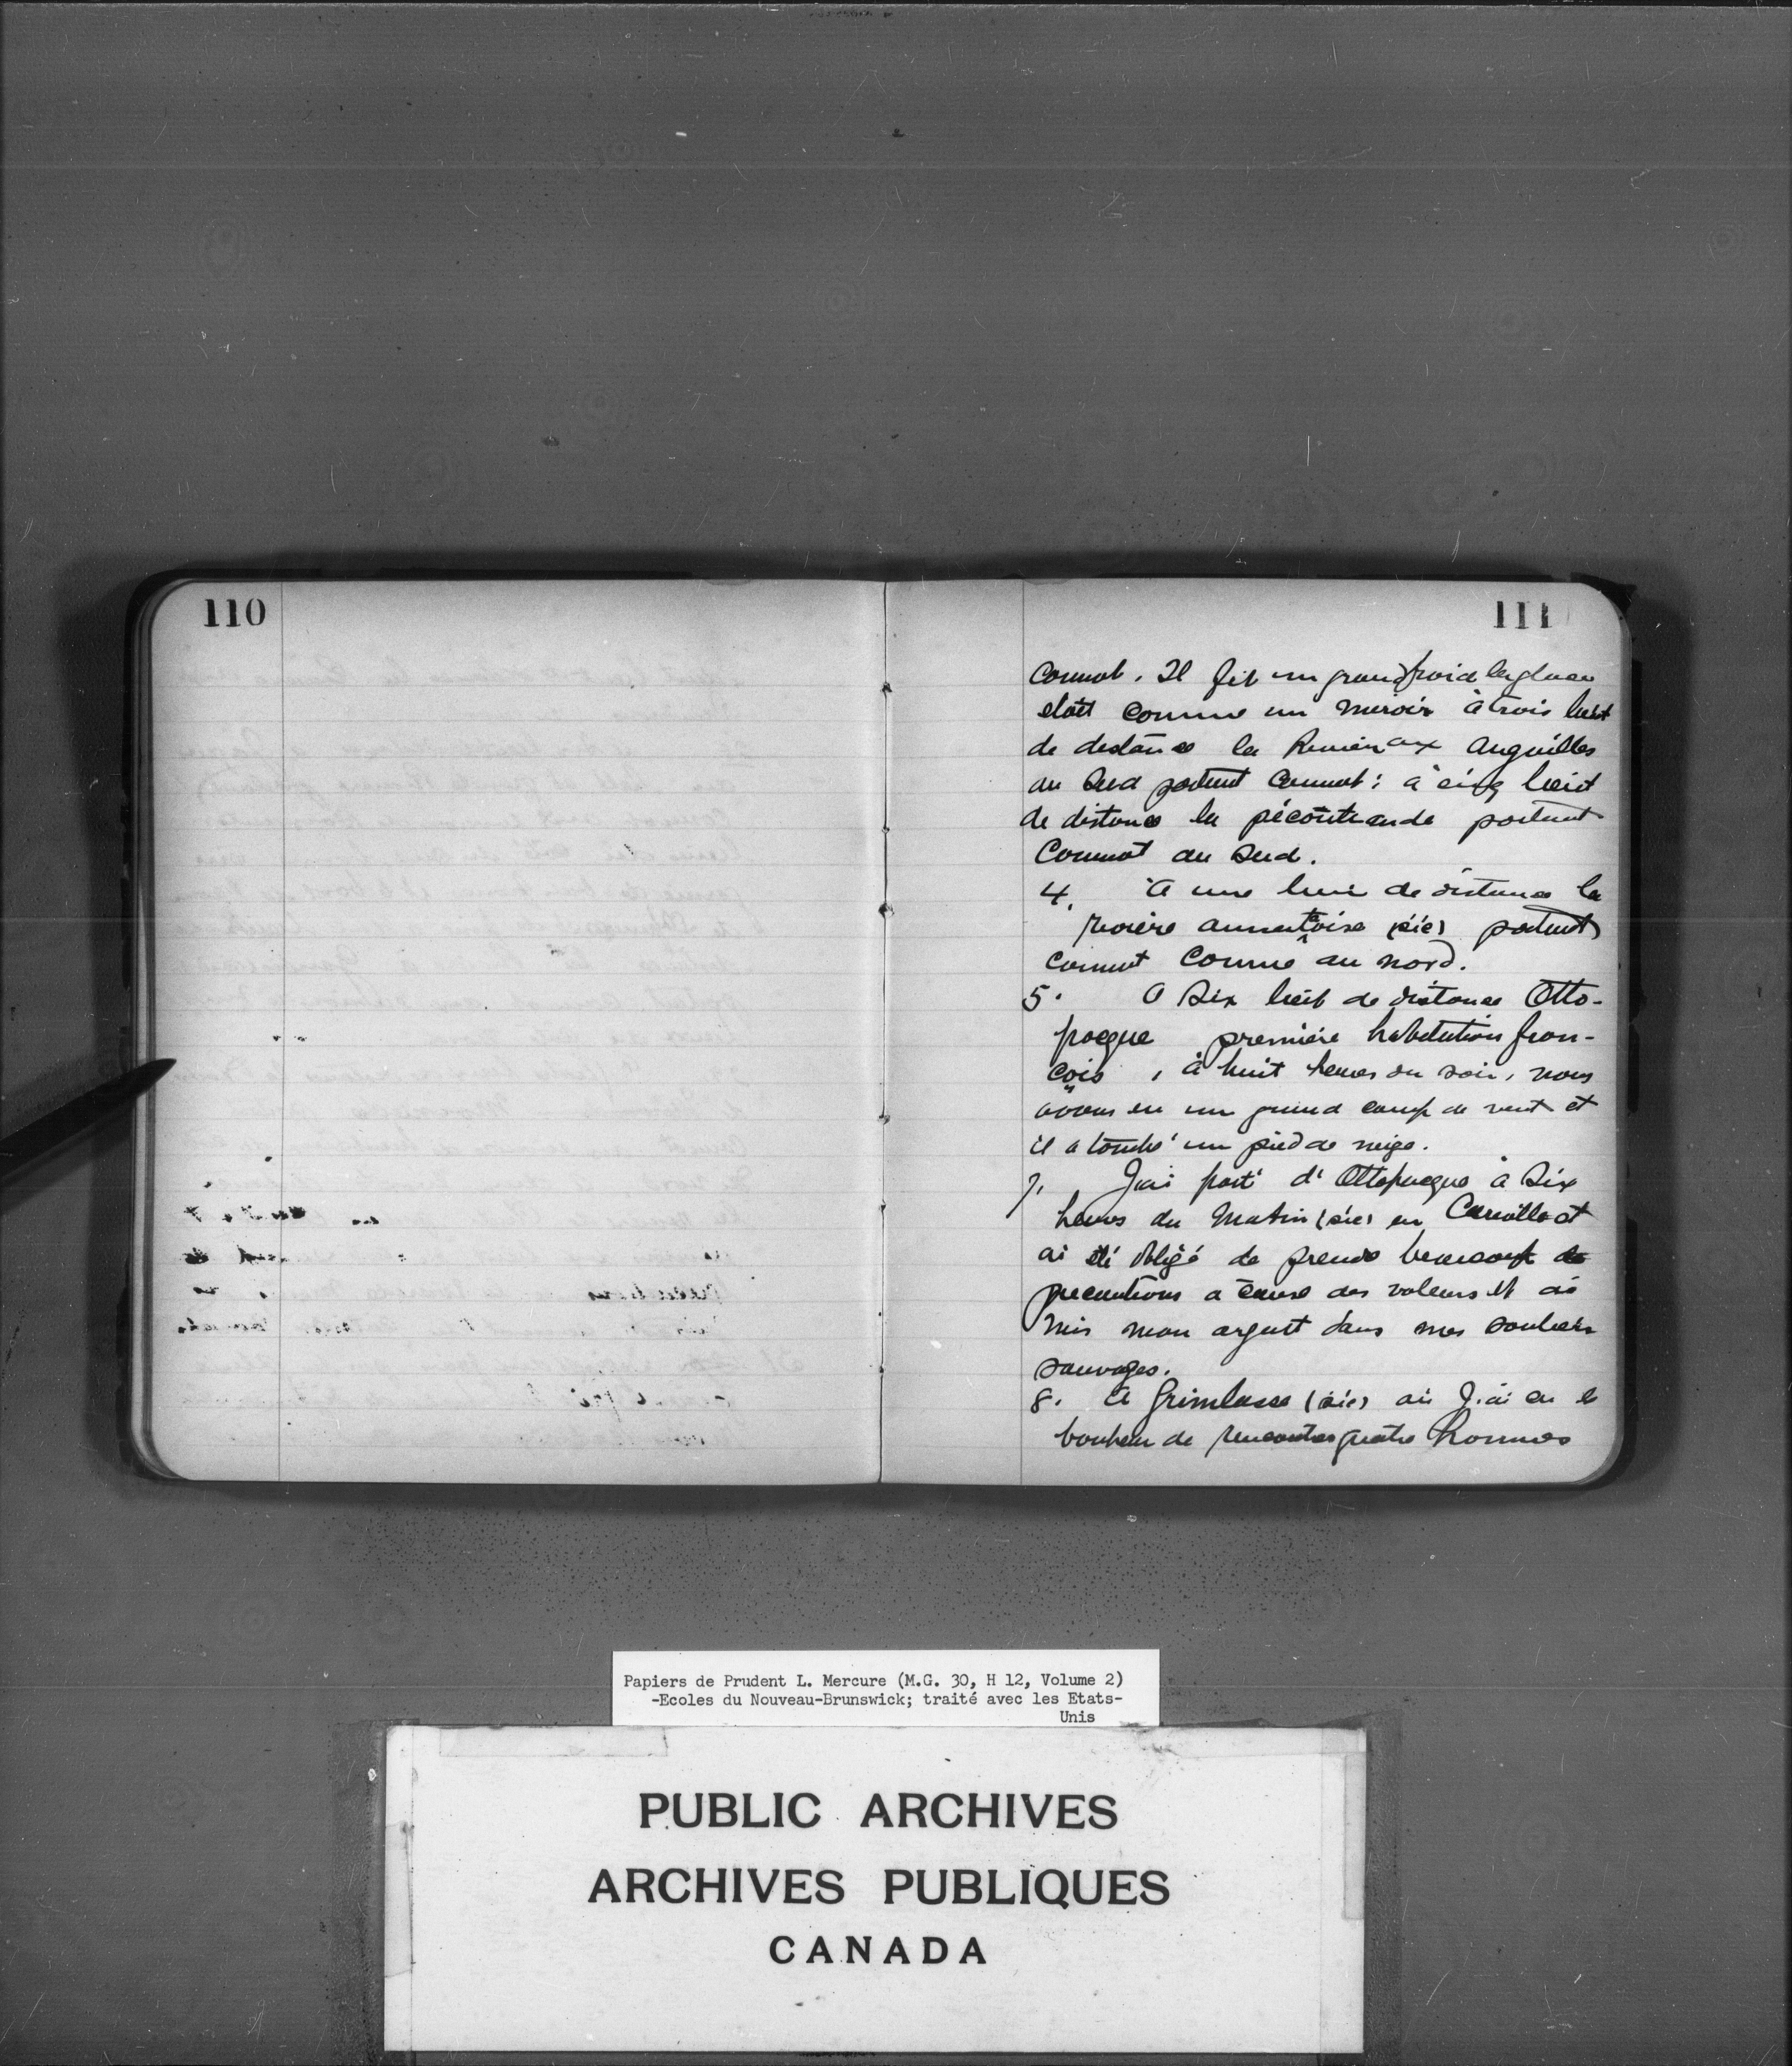 110
111
Cournot. Il fit un grand froid la glace
etait comme un miroir à trois lieut
de distance la Riviere aux anguilles
au Sud portent Cournot: à cinq lieut
de distance la pécoutiaude portent
Cournot au Sud.
4. A une lieu de distance la
riviere (sic) portent
comme au nord.
5. A Six lieut de distance Otto-
pocque première habitation fran-
çois, à huit heures du soir, nous
avons eu un grand coup de vent et
il a tombé un pied de neige.
7. J'ai parti d'Ottopucque à Six
heures du Matin (sic) en Cariolle et
ai été obligé de prendre beaucoup de
precautions a cause des voleurs et ai
mis mon argent dans mes souliers
sauvages.
8. A Grimlasse (sic) où J'ai eu le
bonheur de rencontrer quatre hommes
Papiers de Prudent L. Mercure (M.G. 30, H 12, Volume 2)
-Ecoles du Nouveau-Brunswick; traité avec les Etats-
Unis
PUBLIC ARCHIVES
ARCHIVES PUBLIQUES
CANADA